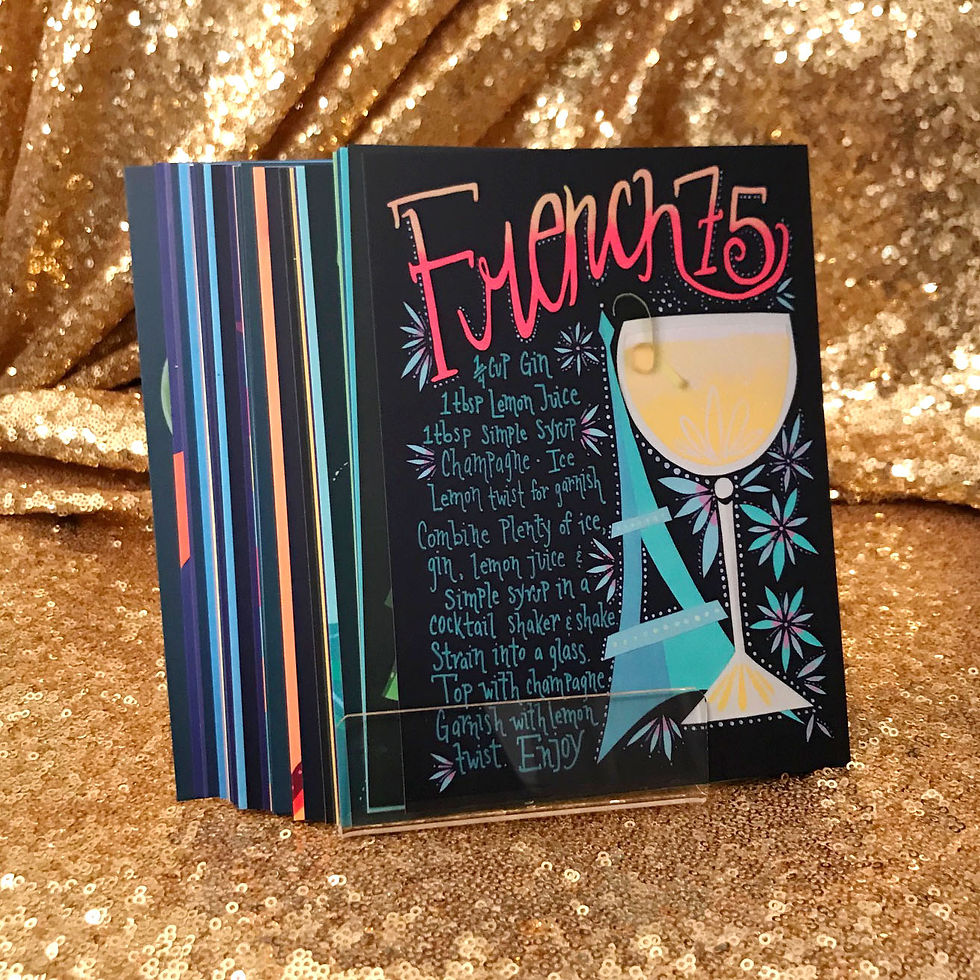 French 75
1/4 cup Gin
1tbsp Lemon Juice
1tbsp Simple Syrup
Champagne - Ice
Lemon twist for garnish
Combine Plenty of ice,
gin, lemon juice &
simple syrup in a
cocktail shaker & shake.
Strain into a glass.
Top with champagne
Garnish with lemon
twist. Enjoy